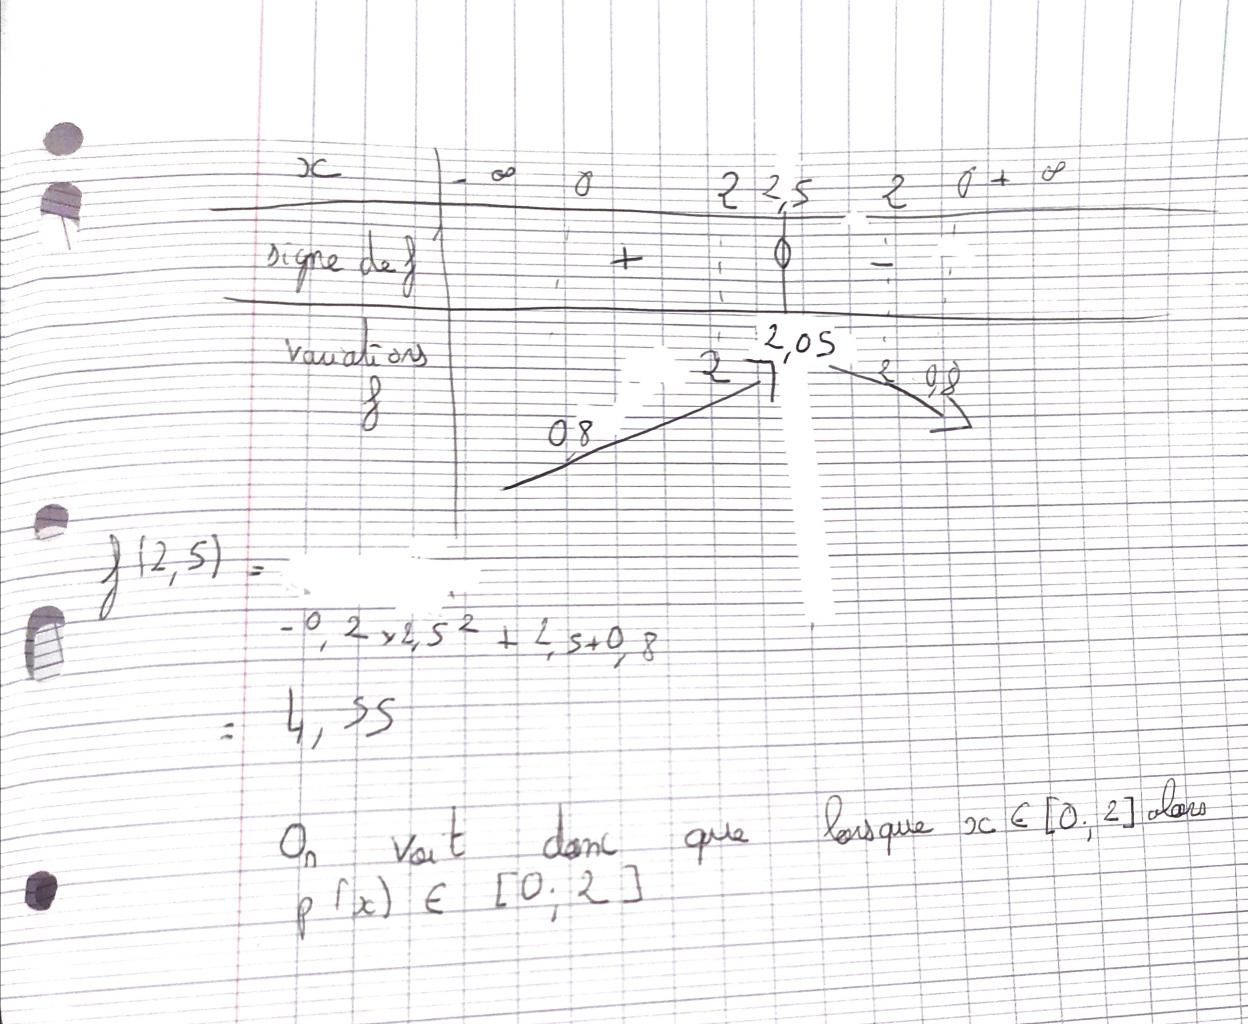 x - ∞ 0 2 2,5 2 0 + ∞
signe de f + 0 -
variations 2 2,05 2 0,8
f 0,8
f(2,5) =
-0,2 × 2,5² + 2,5 + 0,8
= 4,55
On voit donc que lorsque x ∈ [0; 2] alors
f(x) ∈ [0; 2]